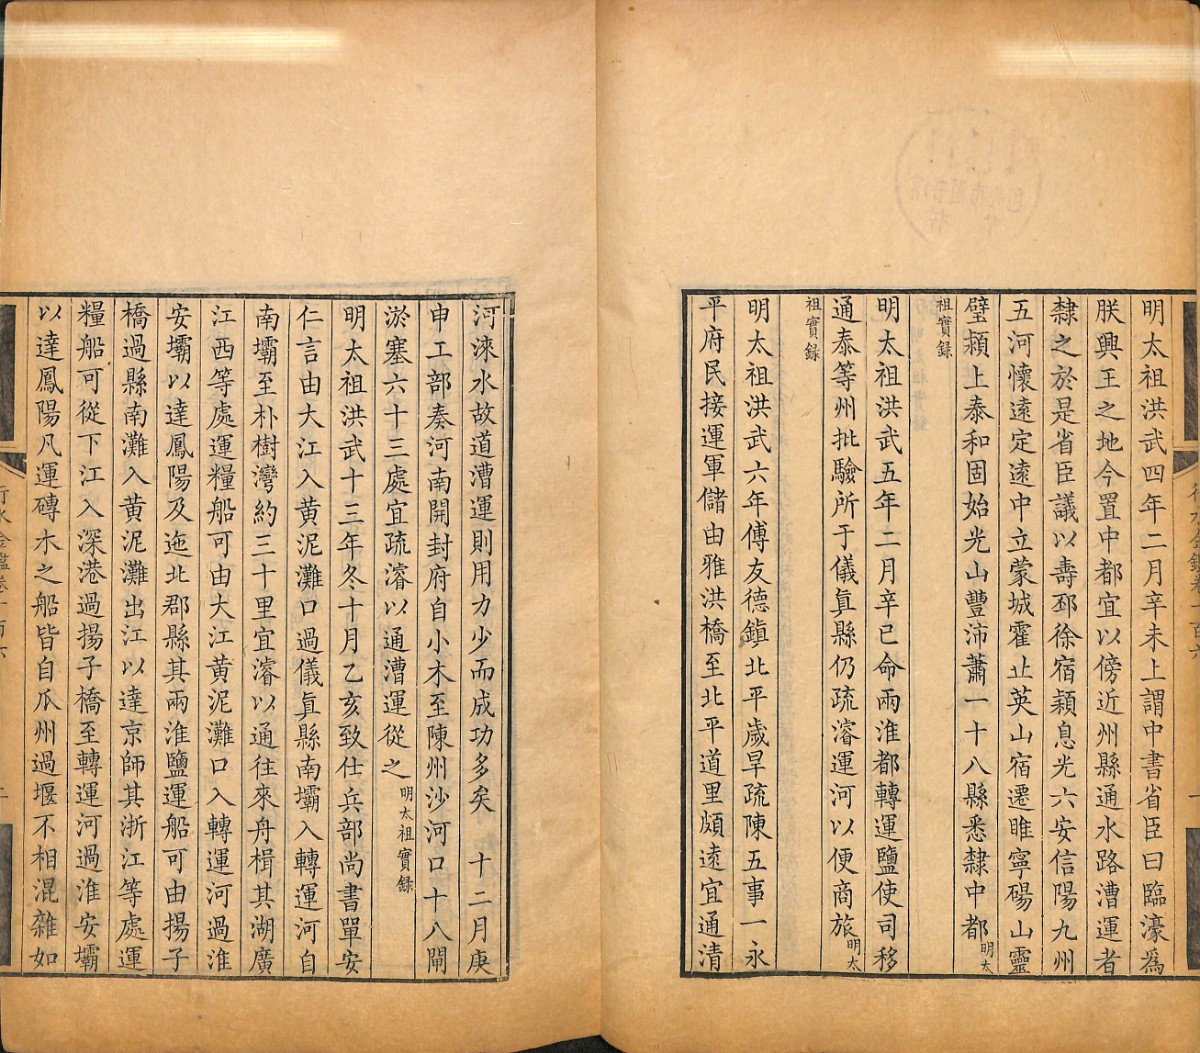 明太祖洪武四年二月辛未上謂中書省臣曰臨濠爲
朕興王之地今置中都宜以傍近州縣通水路漕運者
隸之於是省臣議以壽邳徐宿潁息光六安信陽九州
五河懷遠定遠中立蒙城霍丘英山宿遷睢寧碭山靈
璧潁上泰和固始光山豐沛蕭一十八縣悉隸中都明太
祖實錄
明太祖洪武五年二月辛巳命兩淮都轉運鹽使司移
通泰等州批驗所于儀眞縣仍疏濬運河以便商旅明太
祖實錄
明太祖洪武六年傅友德鎭北平歲旱疏陳五事一永
平府民接運軍儲由雅洪橋至北平道里頗遠宜通清
河淶水故道漕運則用力少而成功多矣 十二月庚
申工部奏河南開封府自小木至陳州沙河口十八閘
淤塞六十三處宜疏濬以通漕運從之明太祖實錄
明太祖洪武十三年冬十月乙亥致仕兵部尚書單安
仁言由大江入黄泥灘口過儀眞縣南壩入轉運河自
南壩至朴樹灣約三十里宜濬以通往來舟楫其湖廣
江西等處運糧船可由大江黄泥灘口入轉運河過淮
安壩以達鳳陽及迤北郡縣其兩淮鹽運船可由揚子
橋過縣南灘入黄泥灘出江以達京師其浙江等處運
糧船可從下江入深港過揚子橋至轉運河過淮安壩
以達鳳陽凡運磚木之船皆自瓜州過堰不相混雜如
行水金鑑卷一百六
二